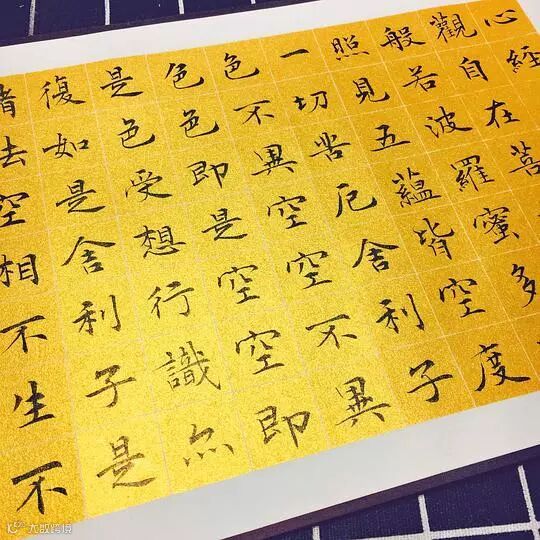 心經
觀自在菩
般若波羅蜜多
照見五蘊皆空度
一切苦厄舍利子
色不異空空不異
色色即是空空即
是色受想行識亦
復如是舍利子是
諸法空相不生不
大数跨境